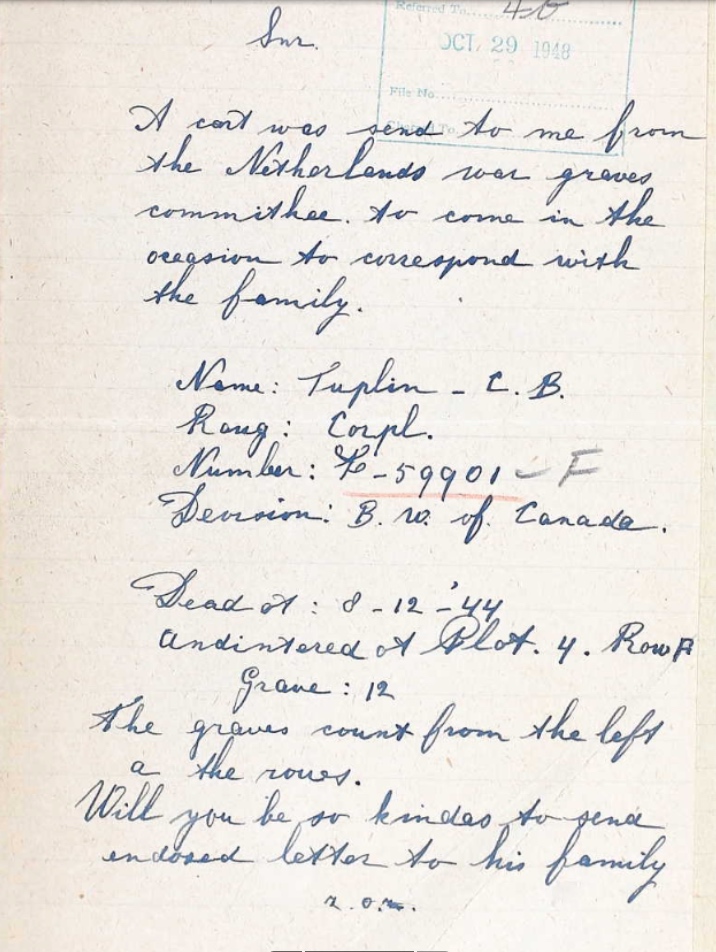 Referred To
40
OCT. 29 1948
File No.
Charged To
Snr.
A cart was send to me from
the Netherlands war graves
committee. to come in the
occasion to correspond with
the family.
Name: Tuplin - C. B.
Rang: Corpl.
Number: F-59901 - F
Devision: B. W. of Canada.
Dead at: 8-12-'44
Andintered at Plot. 4. Row F
Grave: 12
The graves count from the left
a the rowes.
Will you be so kindas to send
enclosed letter to his family
z.o.z.